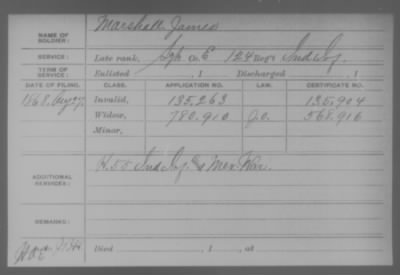 NAME OF SOLDIER: Marshall James
SERVICE: Late rank, Sgt. Co. E 124 Reg't Ind Inf.
TERM OF SERVICE: Enlisted , 1 Discharged , 1
DATE OF FILING. CLASS. APPLICATION NO. LAW. CERTIFICATE NO.
1868. Aug 27. Invalid, 135,263 135,904
Widow, 780,910 G.O. 568,916
Minor,
ADDITIONAL SERVICES: 55 Ind Inf. & Mex War.
REMARKS:
Died , 1 , at